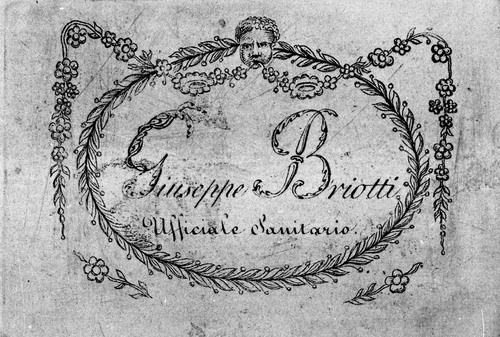 Giuseppe Briotti
Ufficiale Sanitario.